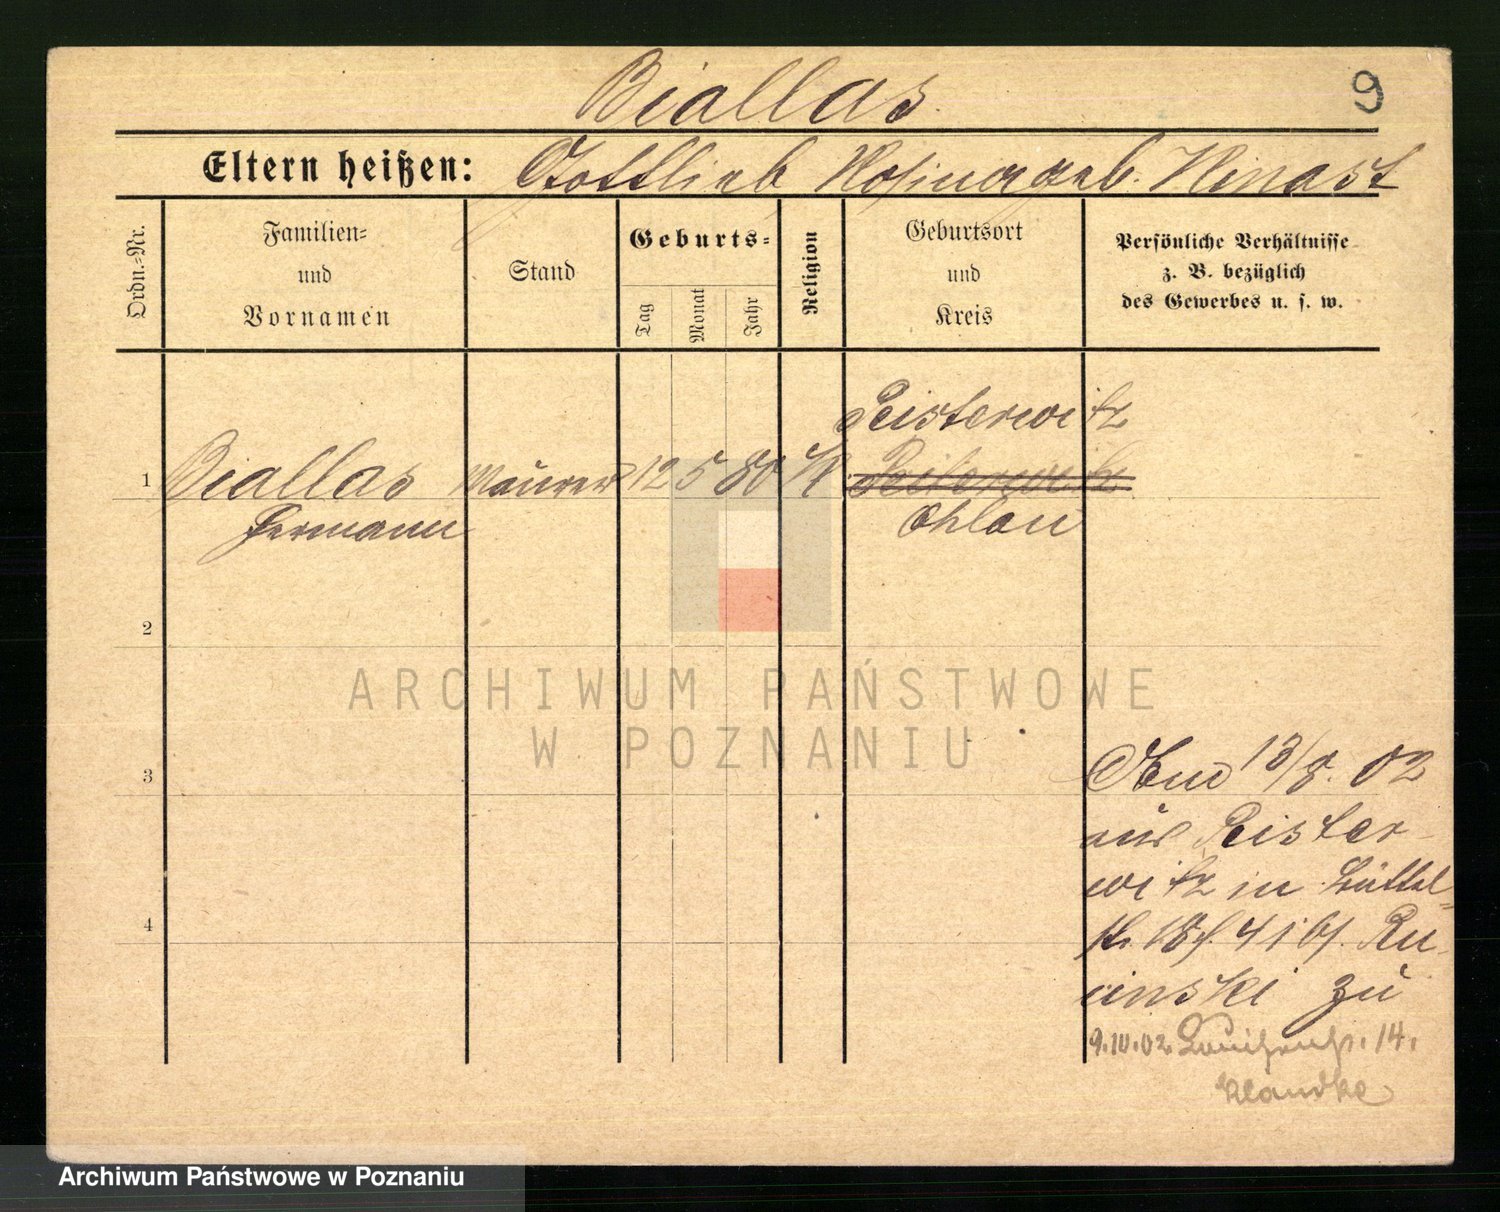 Biallas
9
Eltern heißen: Gottlieb Rosina geb. Kinast
Ordn.-Nr.
Familien-
und
Vornamen
Stand
Geburts-
Tag
Monat
Jahr
Religion
Geburtsort
und
Kreis
Persönliche Verhältnisse
z. B. bezüglich
des Gewerbes u. s. w.
Peisterwitz
1 Biallas Maurer 12 5 80 Peisterwitz
Hermann
Ohlau
2
ARCHIWUM PAŃSTWOWE
W POZNANIU
3
13/8. 02
aus Peister-
witz in Büttel-
4
str. 18 41 bei
zu
9.10.02 14.
Klandke
Archiwum Państwowe w Poznaniu